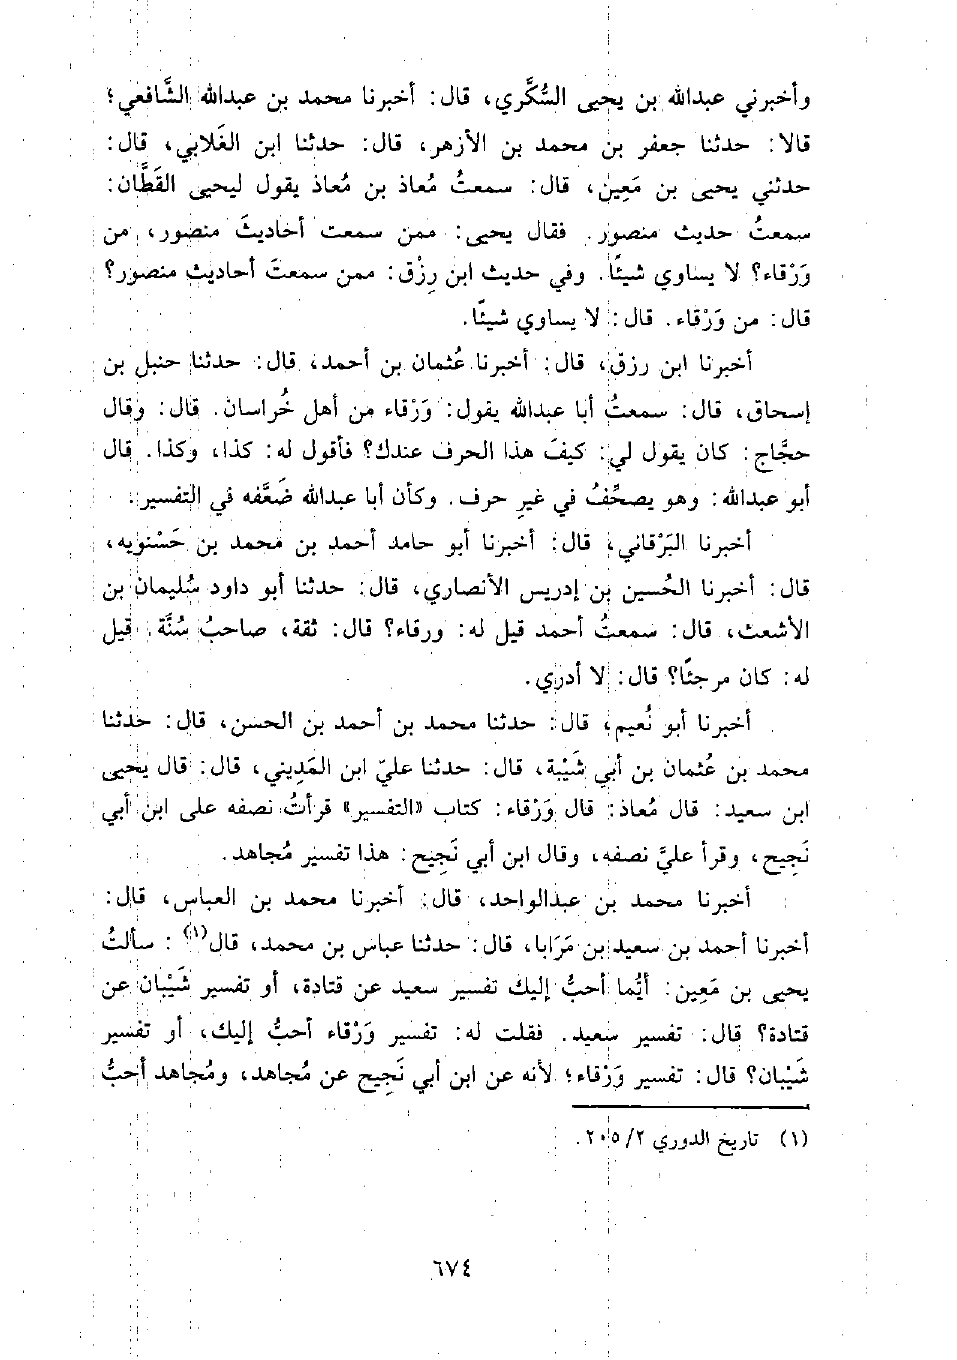 وأخبرني عبدالله بن يحيى السُّكَّري، قال: أخبرنا محمد بن عبدالله الشَّافعي؛
قالا: حدثنا جعفر بن محمد بن الأزهر، قال: حدثنا ابن الغَلابي، قال:
حدثني يحيى بن مَعِين، قال: سمعتُ مُعاذ بن مُعاذ يقول ليحيى القَطَّان:
سمعتُ حديث منصور. فقال يحيى: ممن سمعت أحاديثَ منصور، من
وَرْقاء؟ لا يساوي شيئًا. وفي حديث ابن رِزْق: ممن سمعتَ أحاديث منصور؟
قال: من وَرْقاء. قال: لا يساوي شيئًا.
أخبرنا ابن رزق، قال: أخبرنا عُثمان بن أحمد، قال: حدثنا حنبل بن
إسحاق، قال: سمعتُ أبا عبدالله يقول: وَرْقاء من أهل خُراسان. قال: وقال
حجَّاج: كان يقول لي: كيفَ هذا الحرف عندك؟ فأقول له: كذا، وكذا. قال
أبو عبدالله: وهو يصحِّفُ في غيرِ حرف. وكأن أبا عبدالله ضَعَّفه في التفسير.
أخبرنا البَرْقاني، قال: أخبرنا أبو حامد أحمد بن محمد بن حَسْنويه،
قال: أخبرنا الحُسين بن إدريس الأنصاري، قال: حدثنا أبو داود سُليمان بن
الأشعث، قال: سمعتُ أحمد قيل له: ورقاء؟ قال: ثقة، صاحبُ سُنَّة. قيل
له: كان مرجئًا؟ قال: لا أدري.
أخبرنا أبو نُعيم، قال: حدثنا محمد بن أحمد بن الحسن، قال: حدثنا
محمد بن عُثمان بن أبي شَيْبة، قال: حدثنا عليّ ابن المَدِيني، قال: قال يحيى
ابن سعيد: قال مُعاذ: قال وَرْقاء: كتاب «التفسير» قرأتُ نصفه على ابن أبي
نَجِيح، وقرأ عليَّ نصفه، وقال ابن أبي نَجِيح: هذا تفسير مُجاهد.
أخبرنا محمد بن عبدالواحد، قال: أخبرنا محمد بن العباس، قال:
أخبرنا أحمد بن سعيد بن مَرَابا، قال: حدثنا عباس بن محمد، قال(١): سألتُ
يحيى بن مَعِين: أيُّما أحبُّ إليك تفسير سعيد عن قتادة، أو تفسير شَيْبان عن
قتادة؟ قال: تفسير سعيد. فقلت له: تفسير وَرْقاء أحبُّ إليك، أو تفسير
شَيْبان؟ قال: تفسير وَرْقاء؛ لأنه عن ابن أبي نَجِيح عن مُجاهد، ومُجاهد أحبُّ
(١) تاريخ الدوري ٢/ ٢٠٥.
٦٧٤